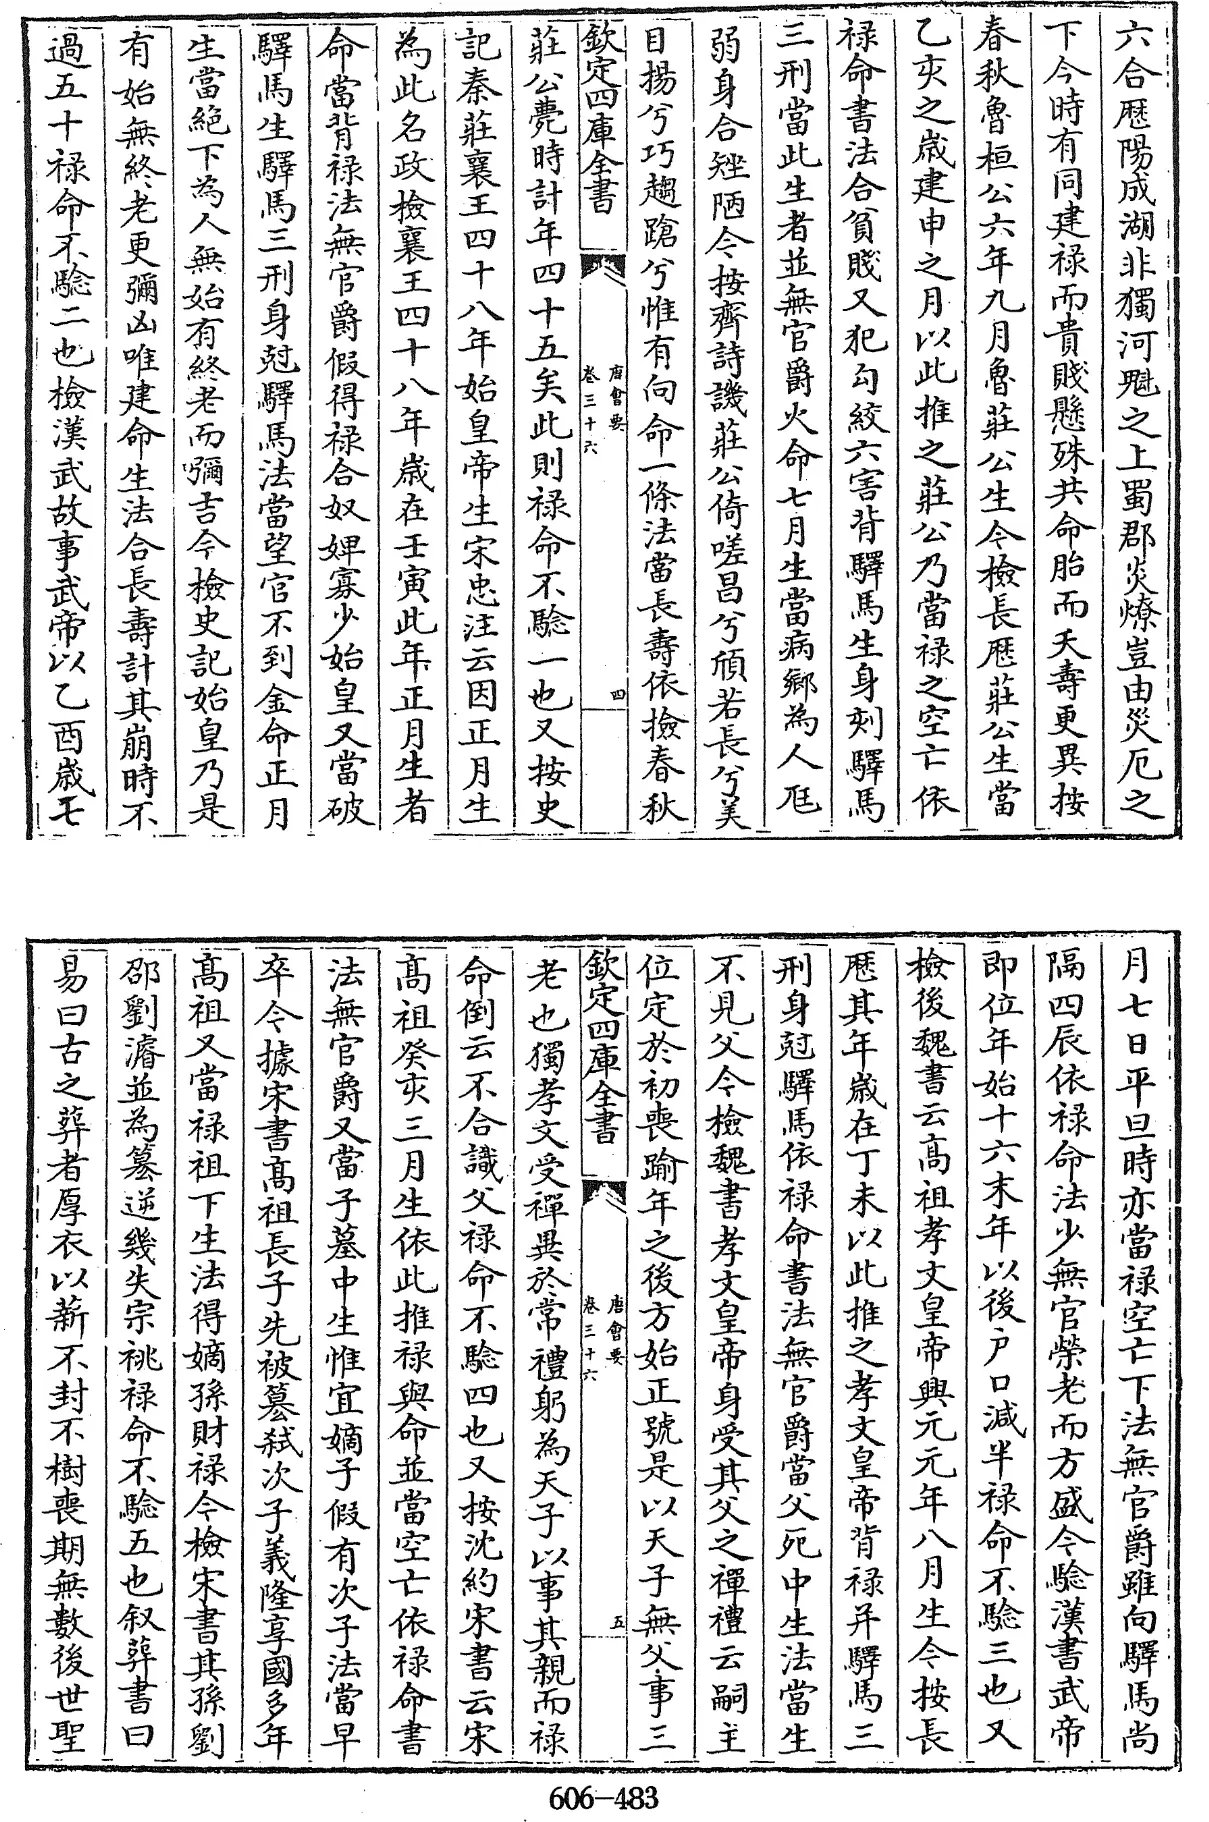 六合歴陽成湖非獨河魁之上蜀郡炎燎豈由災厄之
下今時有同建禄而貴賤懸殊共命胎而夭壽更異按
春秋魯桓公六年九月魯莊公生今檢長歴莊公生當
乙亥之歲建申之月以此推之莊公乃當禄之空亡依
禄命書法合貧賤又犯勾絞六害背驛馬生身剋驛馬
三刑當此生者並無官爵火命七月生當病鄉為人尫
弱身合矬陋今按齊詩譏莊公倚嗟昌兮頎若長兮美
目揚兮巧趨蹌兮惟有向命一條法當長壽依檢春秋
欽定四庫全書 唐會要 卷三十六 四
莊公薨時計年四十五矣此則禄命不驗一也又按史
記秦莊襄王四十八年始皇帝生宋忠注云因正月生
為此名政檢襄王四十八年歲在壬寅此年正月生者
命當背禄法無官爵假得禄合奴婢寡少始皇又當破
驛馬生驛馬三刑身剋驛馬法當望官不到金命正月
生當絕下為人無始有終老而彌吉今檢史記始皇乃是
有始無終老更彌凶唯建命生法合長壽計其崩時不
過五十禄命不驗二也檢漢武故事武帝以乙酉歲七
月七日平旦時亦當禄空亡下法無官爵雖向驛馬尚
隔四辰依禄命法少無官榮老而方盛今驗漢書武帝
即位年始十六末年以後户口減半禄命不驗三也又
檢後魏書云高祖孝文皇帝興元元年八月生今按長
歴其年歲在丁未以此推之孝文皇帝背禄并驛馬三
刑身剋驛馬依禄命書法無官爵當父死中生法當生
不見父今檢魏書孝文皇帝身受其父之禪禮云嗣主
位定於初喪踰年之後方始正號是以天子無父事三
欽定四庫全書 唐會要 卷三十六 五
老也獨孝文受禪異於常禮躬為天子以事其親而禄
命倒云不合識父禄命不驗四也又按沈約宋書云宋
高祖癸亥三月生依此推禄與命並當空亡依禄命書
法無官爵又當子墓中生惟宜嫡子假有次子法當早
卒今據宋書高祖長子先被簒弑次子義隆享國多年
高祖又當禄祖下生法得嫡孫財禄今檢宋書其孫劉
邵劉濬並為簒逆幾失宗祧禄命不驗五也叙葬書曰
易曰古之葬者厚衣以薪不封不樹喪期無數後世聖
606-483